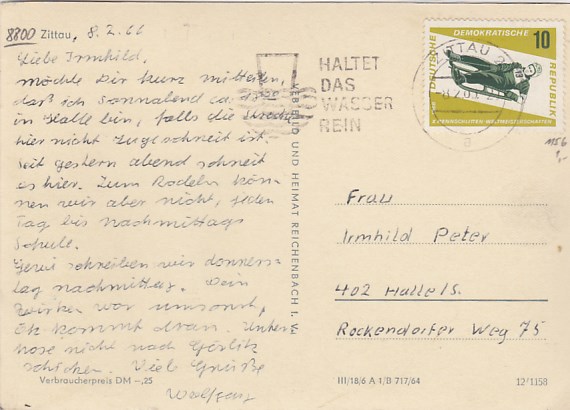 8800 Zittau, 8.2.66
Liebe Irmhild,
möchte Dir kurz mitteilen,
daß ich Sonnabend ca
in Halle bin, falls die Strecke
hier nicht zugeschneit ist.
Seit gestern abend schneit
es hier. Zum Rodeln kön-
nen wir aber nicht, jeden
Tag bis nachmittags
Schule.
schreiben wir donners-
tag nachmittag. Dein
war umsonst,
Ek kommt dran. Unter-
hose nicht nach Görlitz
schicken. Viele Grüße
Wolfgang
Verbraucherpreis DM -,25
BILD UND HEIMAT REICHENBACH I. V.
HALTET
DAS
WASSER
REIN
ZITTAU 2
a
DEUTSCHE DEMOKRATISCHE REPUBLIK
10
RENNSCHLITTEN-WELTMEISTERSCHAFTEN
1156
1,-
Frau
Irmhild Peter
402 Halle/S.
Rockendorfer Weg 75
III/18/6 A 1/B 717/64
12/1158